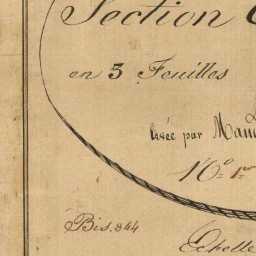 Section
en 3 Feuilles
Levée par
N.o 1.er
Bis. 344
Echelle